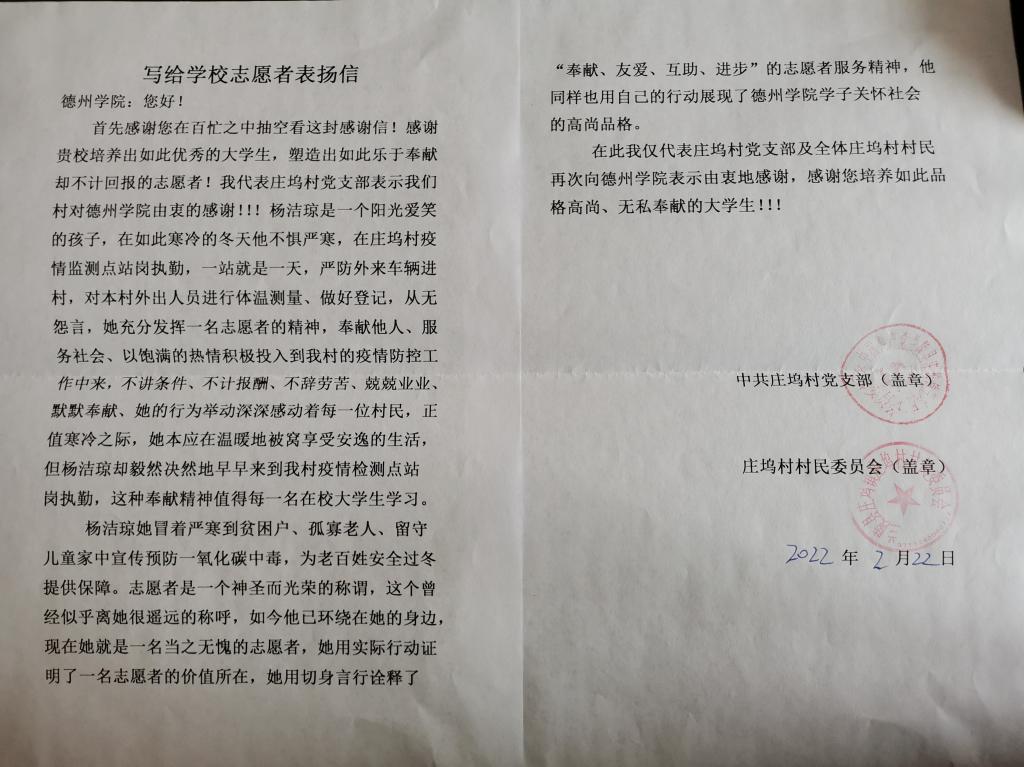 写给学校志愿者表扬信
德州学院：您好！
首先感谢您在百忙之中抽空看这封感谢信！感谢
贵校培养出如此优秀的大学生，塑造出如此乐于奉献
却不计回报的志愿者！我代表庄坞村党支部表示我们
村对德州学院由衷的感谢!!! 杨洁琼是一个阳光爱笑
的孩子，在如此寒冷的冬天他不惧严寒，在庄坞村疫
情监测点站岗执勤，一站就是一天，严防外来车辆进
村，对本村外出人员进行体温测量、做好登记，从无
怨言，她充分发挥一名志愿者的精神，奉献他人、服
务社会、以饱满的热情积极投入到我村的疫情防控工
作中来，不讲条件、不计报酬、不辞劳苦、兢兢业业、
默默奉献、她的行为举动深深感动着每一位村民，正
值寒冷之际，她本应在温暖地被窝享受安逸的生活，
但杨洁琼却毅然决然地早早来到我村疫情检测点站
岗执勤，这种奉献精神值得每一名在校大学生学习。
杨洁琼她冒着严寒到贫困户、孤寡老人、留守
儿童家中宣传预防一氧化碳中毒，为老百姓安全过冬
提供保障。志愿者是一个神圣而光荣的称谓，这个曾
经似乎离她很遥远的称呼，如今他已环绕在她的身边，
现在她就是一名当之无愧的志愿者，她用实际行动证
明了一名志愿者的价值所在，她用切身言行诠释了
“奉献、友爱、互助、进步”的志愿者服务精神，他
同样也用自己的行动展现了德州学院学子关怀社会
的高尚品格。
在此我仅代表庄坞村党支部及全体庄坞村村民
再次向德州学院表示由衷地感谢，感谢您培养如此品
格高尚、无私奉献的大学生!!!
中共庄坞村党支部（盖章）
庄坞村村民委员会（盖章）
2022 年 2 月22日